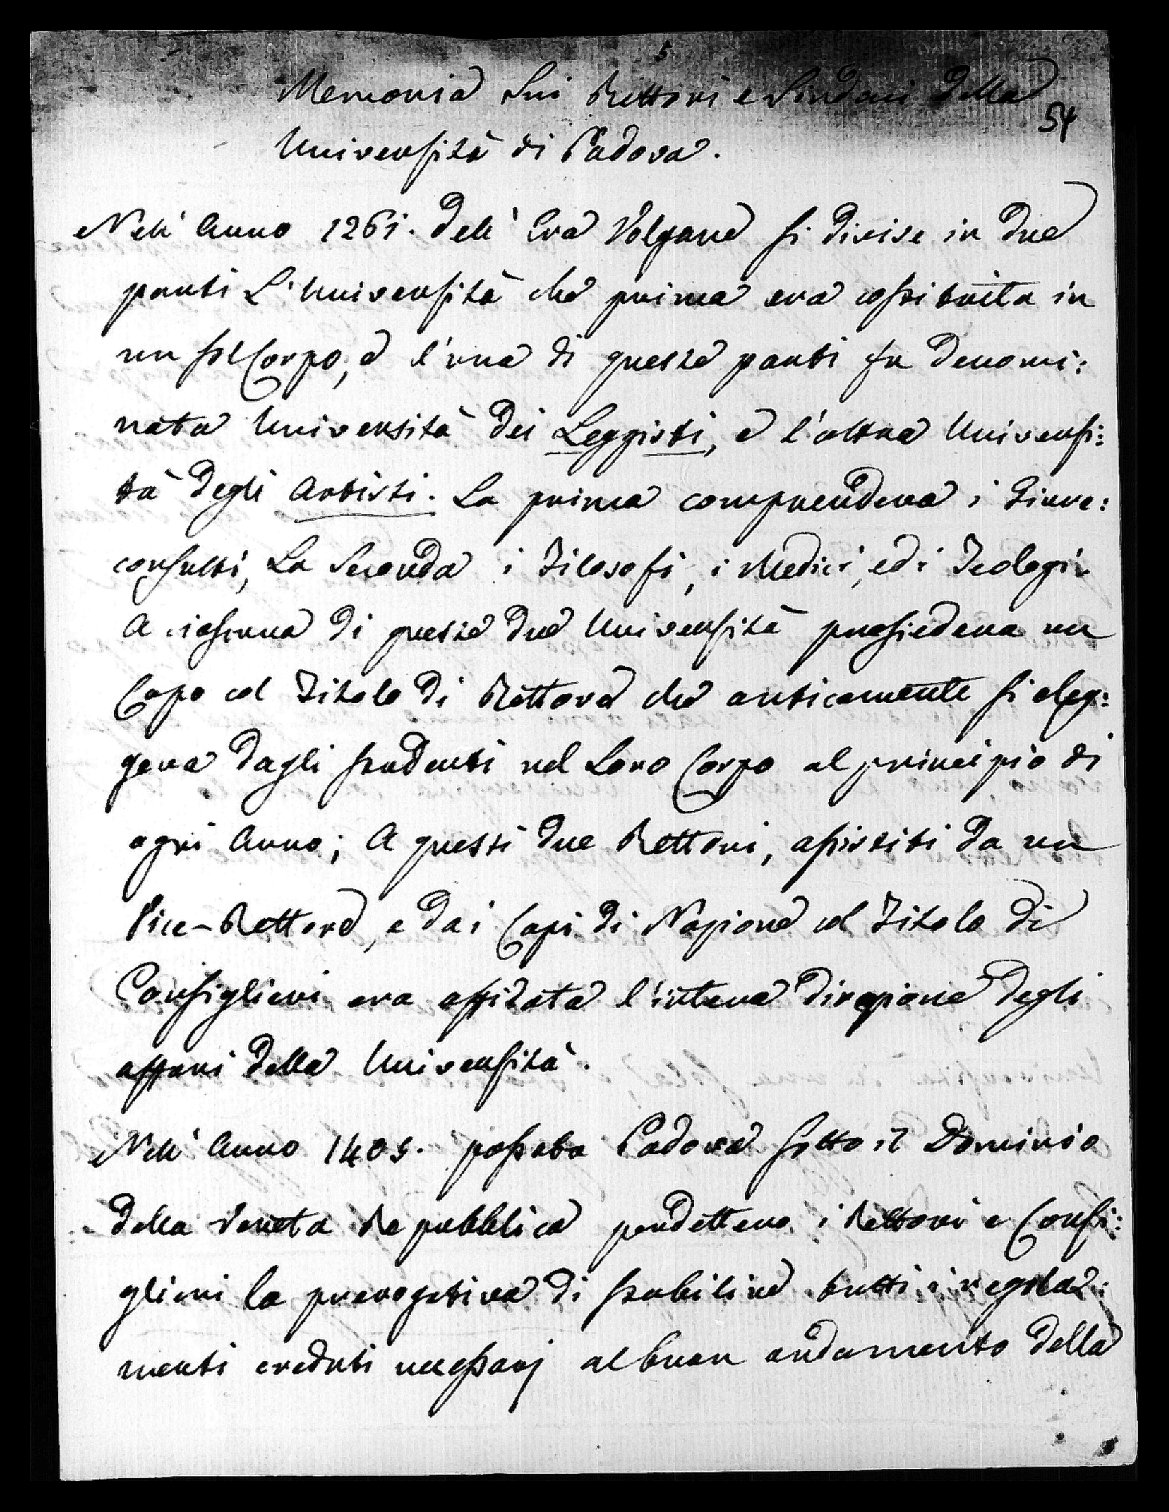 5
Memoria sui Rettori e Sindaci della
54
Università di Padova.
Nell' Anno 1261. dell' Era Volgare si divise in due
parti L'Università che prima era costituita in
un sol Corpo, e l'una di queste parti fu denomi:
nata Università dei Leggisti, e l'altra Universi:
tà degli Artisti. La prima comprendeva i Giure:
consulti, La Seconda i Filosofi, i Medici, ed i Teologi.
A ciascuna di queste due Università presiedeva un
Capo col Titolo di Rettore che anticamente si eleg:
geva dagli studenti nel Loro Corpo al principio di
ogni Anno; A questi due Rettori, assistiti da un
Vice-Rettore, e dai Capi di Nazione col Titolo di
Consiglieri era affidata l'intera direzione degli
affari della Università.
Nell' Anno 1405. passata Padova sotto il Dominio
della Veneta Repubblica perdettero i Rettori e Consi:
glieri la prerogativa di stabilire tutti i regola:
menti creduti necessarj al buon andamento della